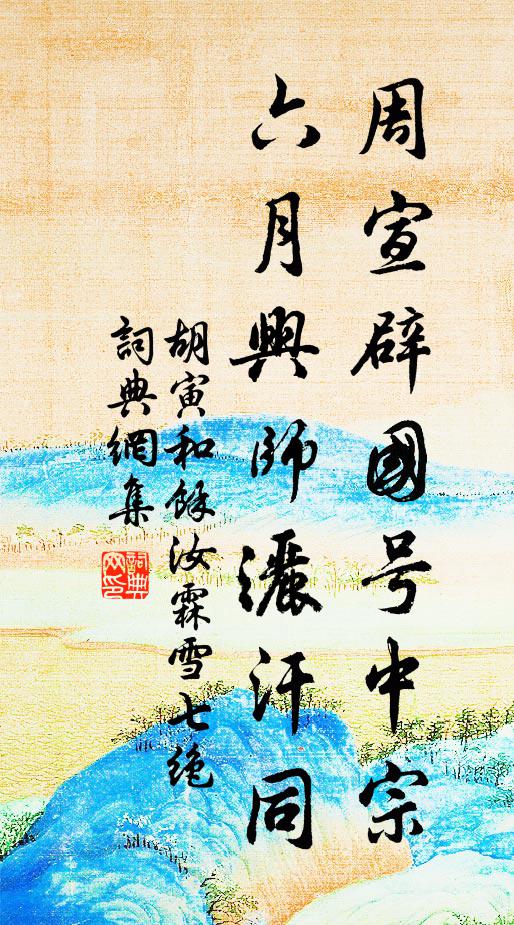 周宣辟國号中宗
六月興師灑汗同
胡寅和餘汝霖雪七絶
詞典網集
詞典